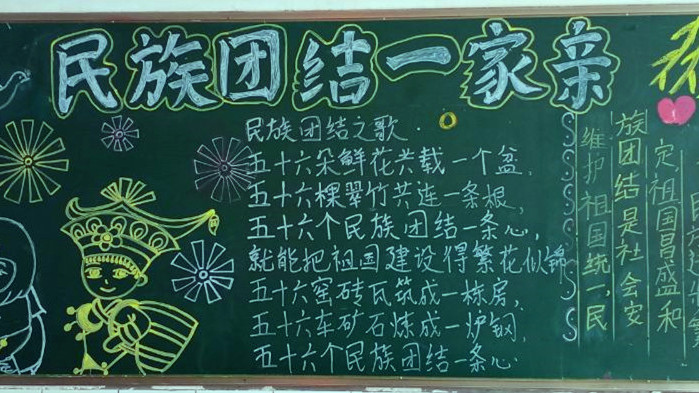 民族团结一家亲
民族团结之歌
五十六朵鲜花共载一个盆，
五十六棵翠竹共连一条根，
五十六个民族团结一条心，
就能把祖国建设得繁花似锦
五十六窑砖瓦筑成一栋房，
五十六车矿石炼成一炉钢，
五十六个民族团结一条心
定祖国昌盛和
族团结是社会安
维护祖国统一，民